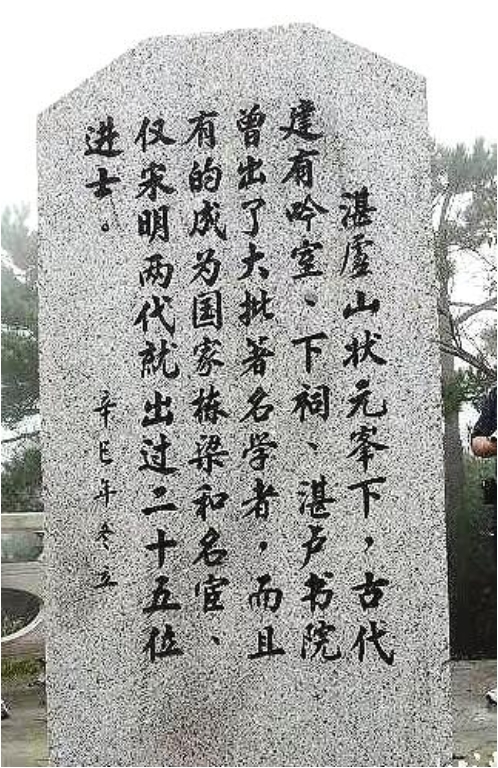 湛盧山状元峯下，古代
建有吟室、下祠、湛卢书院
曾出了大批著名学者，而且
有的成为国家栋梁和名宦、
仅宋明两代就出过二十五位
进士。
辛巳年冬立